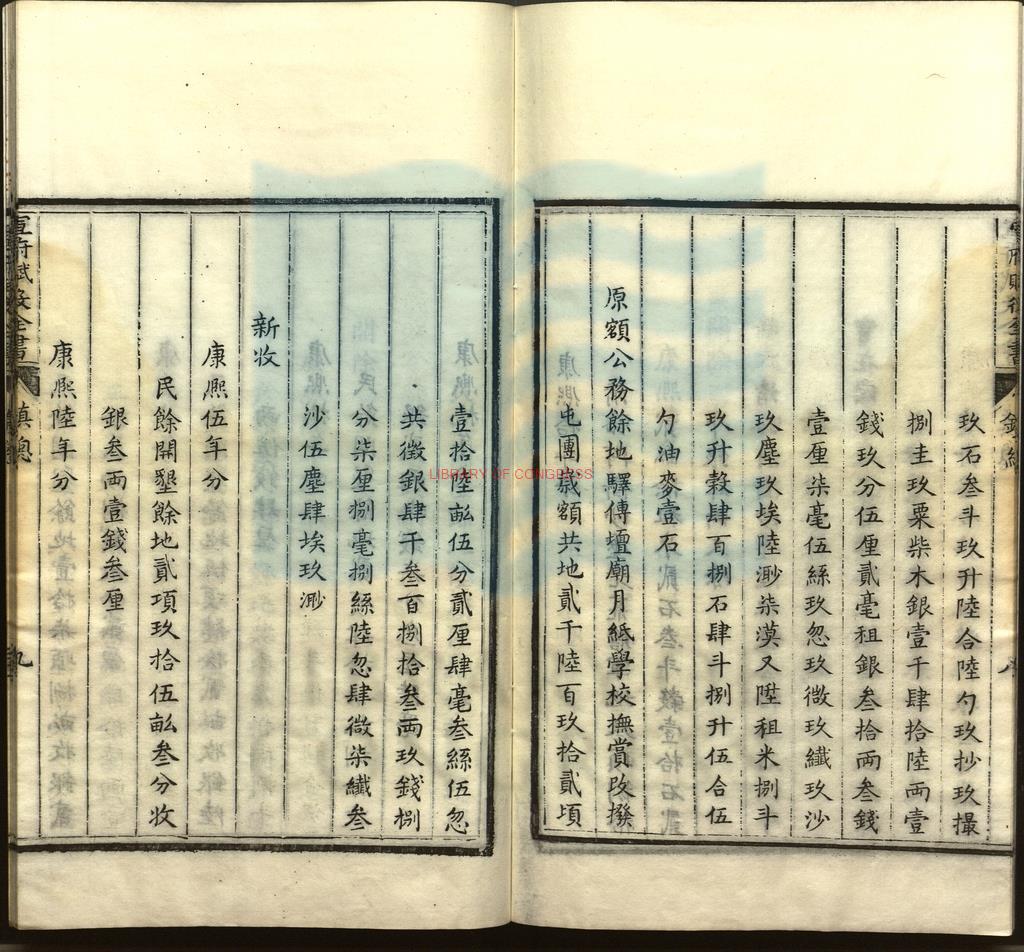 玖石叁斗玖升陸合陸勺玖抄玖撮
捌圭玖粟柴木銀壹千肆拾陸兩壹
錢玖分伍厘貳毫租銀叁拾兩叁錢
壹厘柒毫伍絲玖忽玖微玖纖玖沙
玖塵玖埃陸渺柒漠又陞租米捌斗
玖升穀肆百捌石肆斗捌升伍合伍
勺油麥壹石
原額公務餘地驛傳壇廟月紙學校撫賞改撥
屯團歲額共地貳千陸百玖拾貳頃
壹拾陸畝伍分貳厘肆毫叁絲伍忽
共徵銀肆千叁百捌拾叁兩玖錢捌
分柒厘捌毫捌絲陸忽肆微柒纖叁
沙伍塵肆埃玖渺
新收
康熈伍年分
民餘開墾餘地貳項玖拾伍畝叁分收
銀叁兩壹錢叁厘
康熈陸年分
府賦役全書
鎮總
九
LIBRARY OF CONGRESS